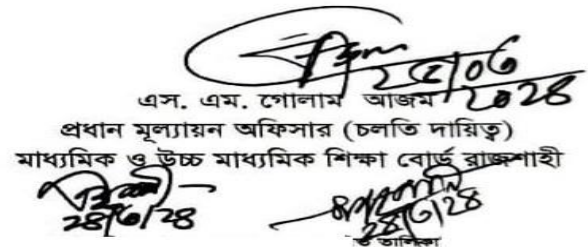 ২৫/০৬
২০২৪
এস. এম. গোলাম আজম
প্রধান মূল্যায়ন অফিসার (চলতি দায়িত্ব)
মাধ্যমিক ও উচ্চ মাধ্যমিক শিক্ষা বোর্ড রাজশাহী
২৪/৬/২৪
২৪/৬/২৪
তালিকা